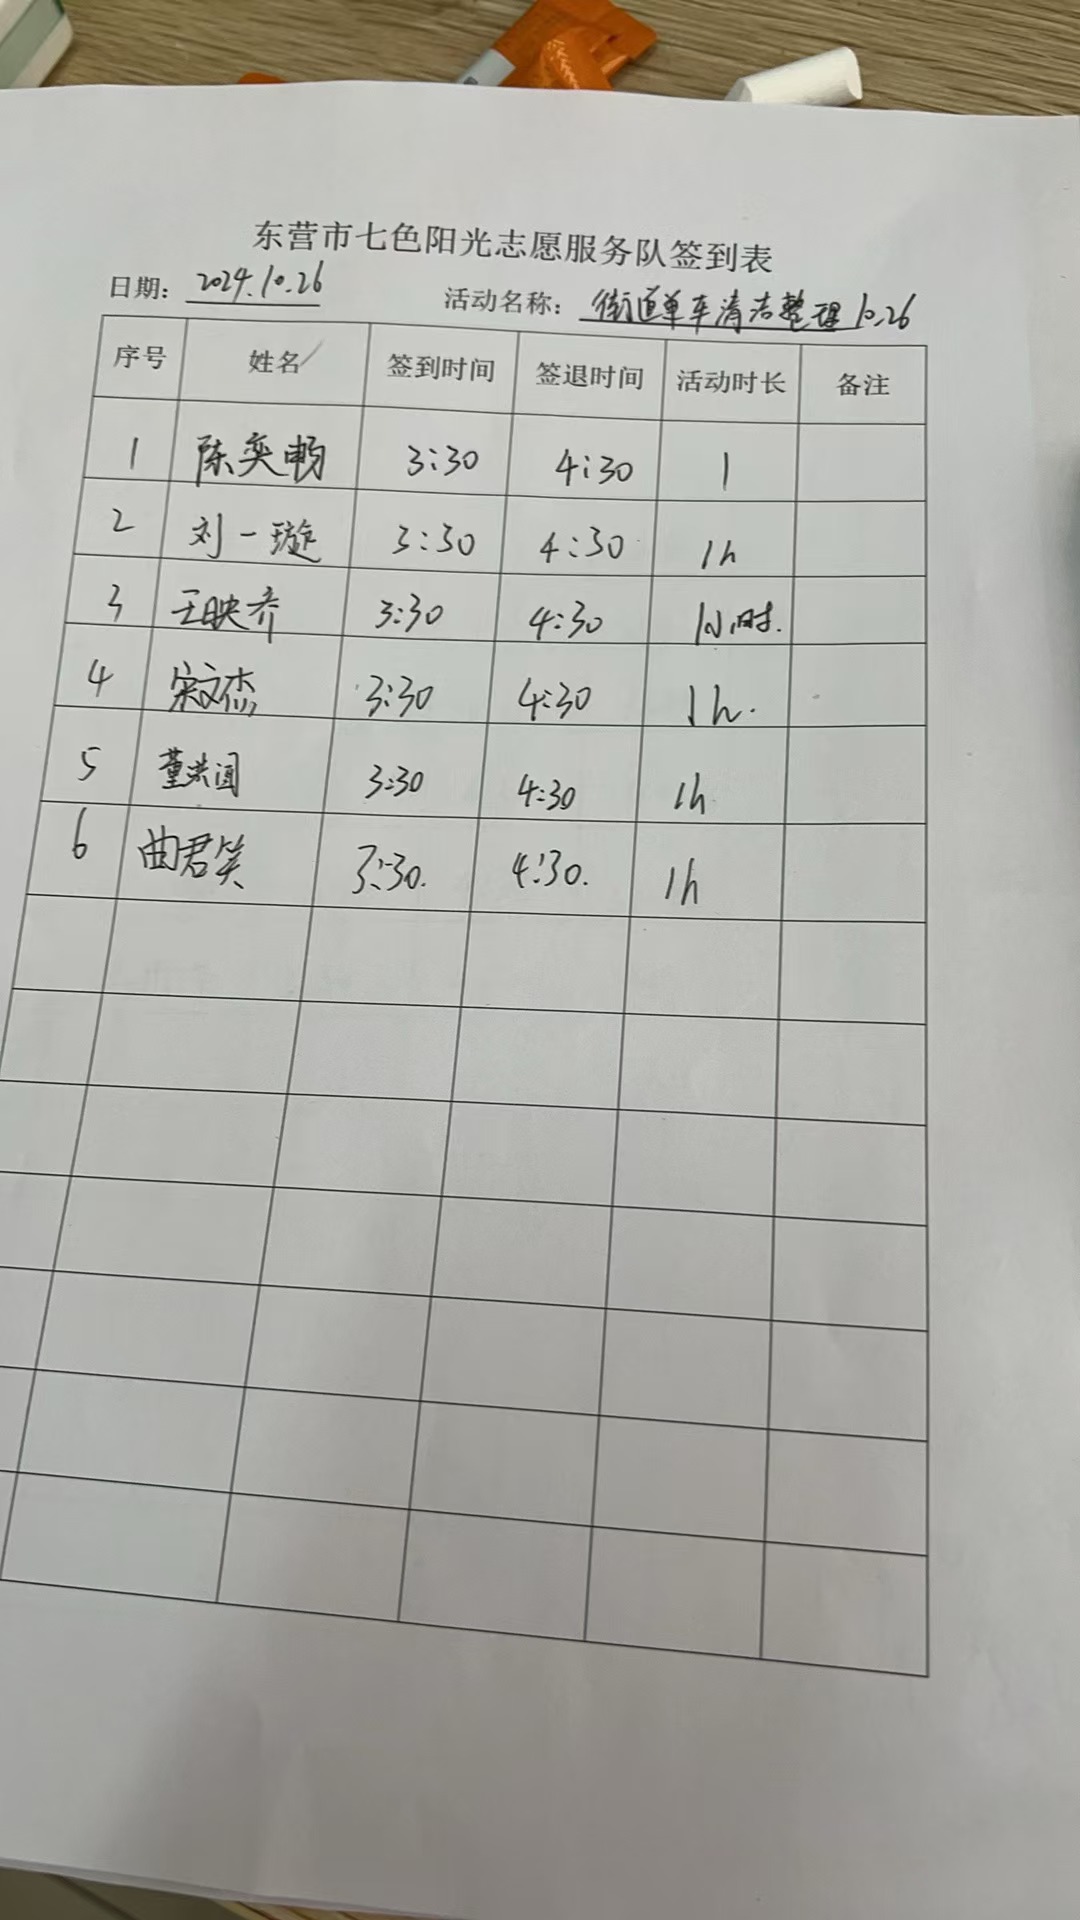 东营市七色阳光志愿服务队签到表
日期: 2024.10.26 活动名称: 街道单车清洁整理 10.26
序号 姓名 签到时间 签退时间 活动时长 备注
1 陈奕畅 3:30 4:30 1
2 刘一璇 3:30 4:30 1h
3 王映齐 3:30 4:30 1小时.
4 宋文杰 3:30 4:30 1h.
5 董洪圆 3:30 4:30 1h
6 曲君笑 3:30. 4:30. 1h